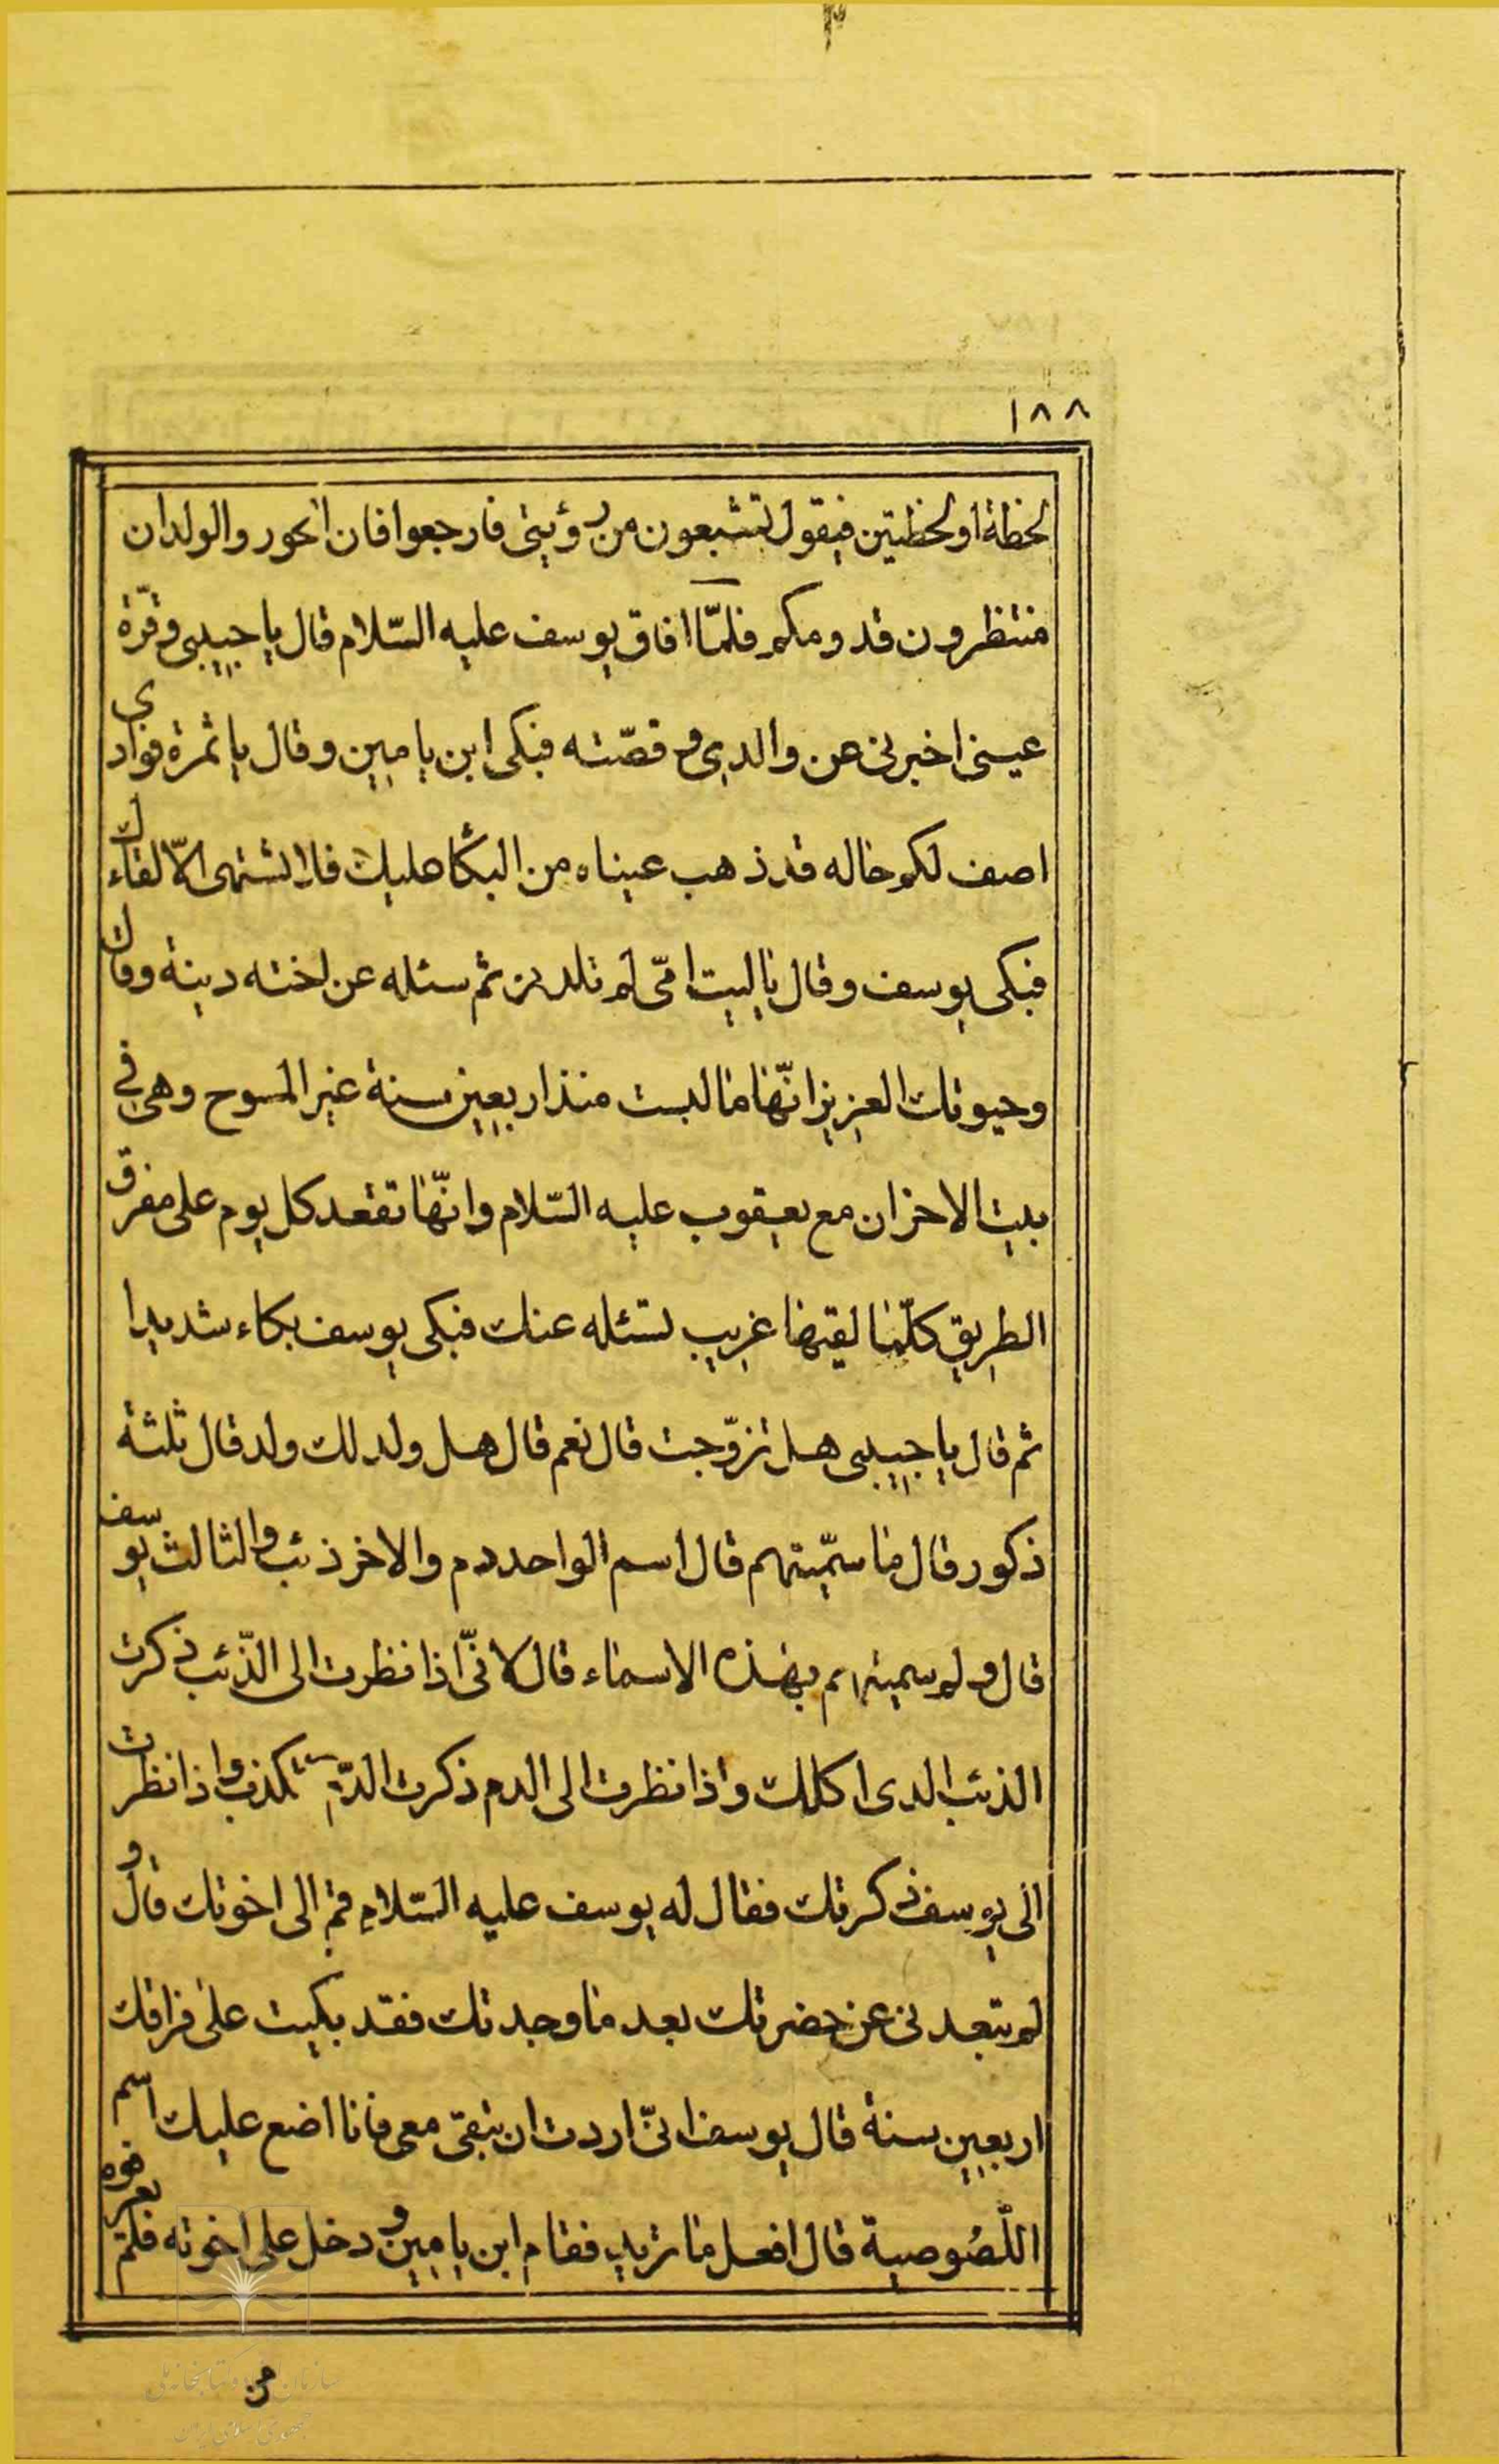 ١٨٨
لحظة او لحظتين فيقول تشبعون من رؤيتى فارجعوا فان الحور والولدان
منتظرون قدومكم فلمّا افاق يوسف عليه السّلام قال يا حبيبى وقرّة
عينى اخبرنى عن والدى وقصّته فبكى ابن يامين وقال يا ثمرة فوادى
اصف لكم حاله قد ذهب عيناه من البكاء عليك فلا اشتهى الّا لقاءك
فبكى يوسف وقال يا ليت امّى لم تلدنى ثم سئله عن اخته دينة وقال
وحيوتك العزيز انّها ما لبست منذ اربعين سنة غير المسوح وهى فى
بيت الاحزان مع يعقوب عليه السّلام وانّها تقعد كل يوم على مفرق
الطريق كلّما لقيها غريب تسئله عنك فبكى يوسف بكاء شديدا
ثم قال يا حبيبى هل تزوّجت قال نعم قال هل ولد لك ولد قال ثلثة
ذكور قال ما سمّيتهم قال اسم الواحد دم والاخر ذئب والثالث يوسف
قال ولم سميتهم بهذه الاسماء قال لانّى اذا نظرت الى الذّئب ذكرت
الذئب الذى اكلك واذا نظرت الى الدم ذكرت الدّم بكذب واذا نظرت
الى يوسف ذكرتك فقال له يوسف عليه السّلام قم الى اخوتك قال و
لم تبعدنى عن حضرتك بعد ما وجدتك فقد بكيت على فراقك
اربعين سنة قال يوسف انّى اردت ان تبقى معى فانا اضع عليك اسم
اللّصُوصية قال افعل ما تريد فقام ابن يامين ودخل على اخوته فلم يعرفوه
من
سازمان اسناد و کتابخانه ملی
جمهوری اسلامی ایران